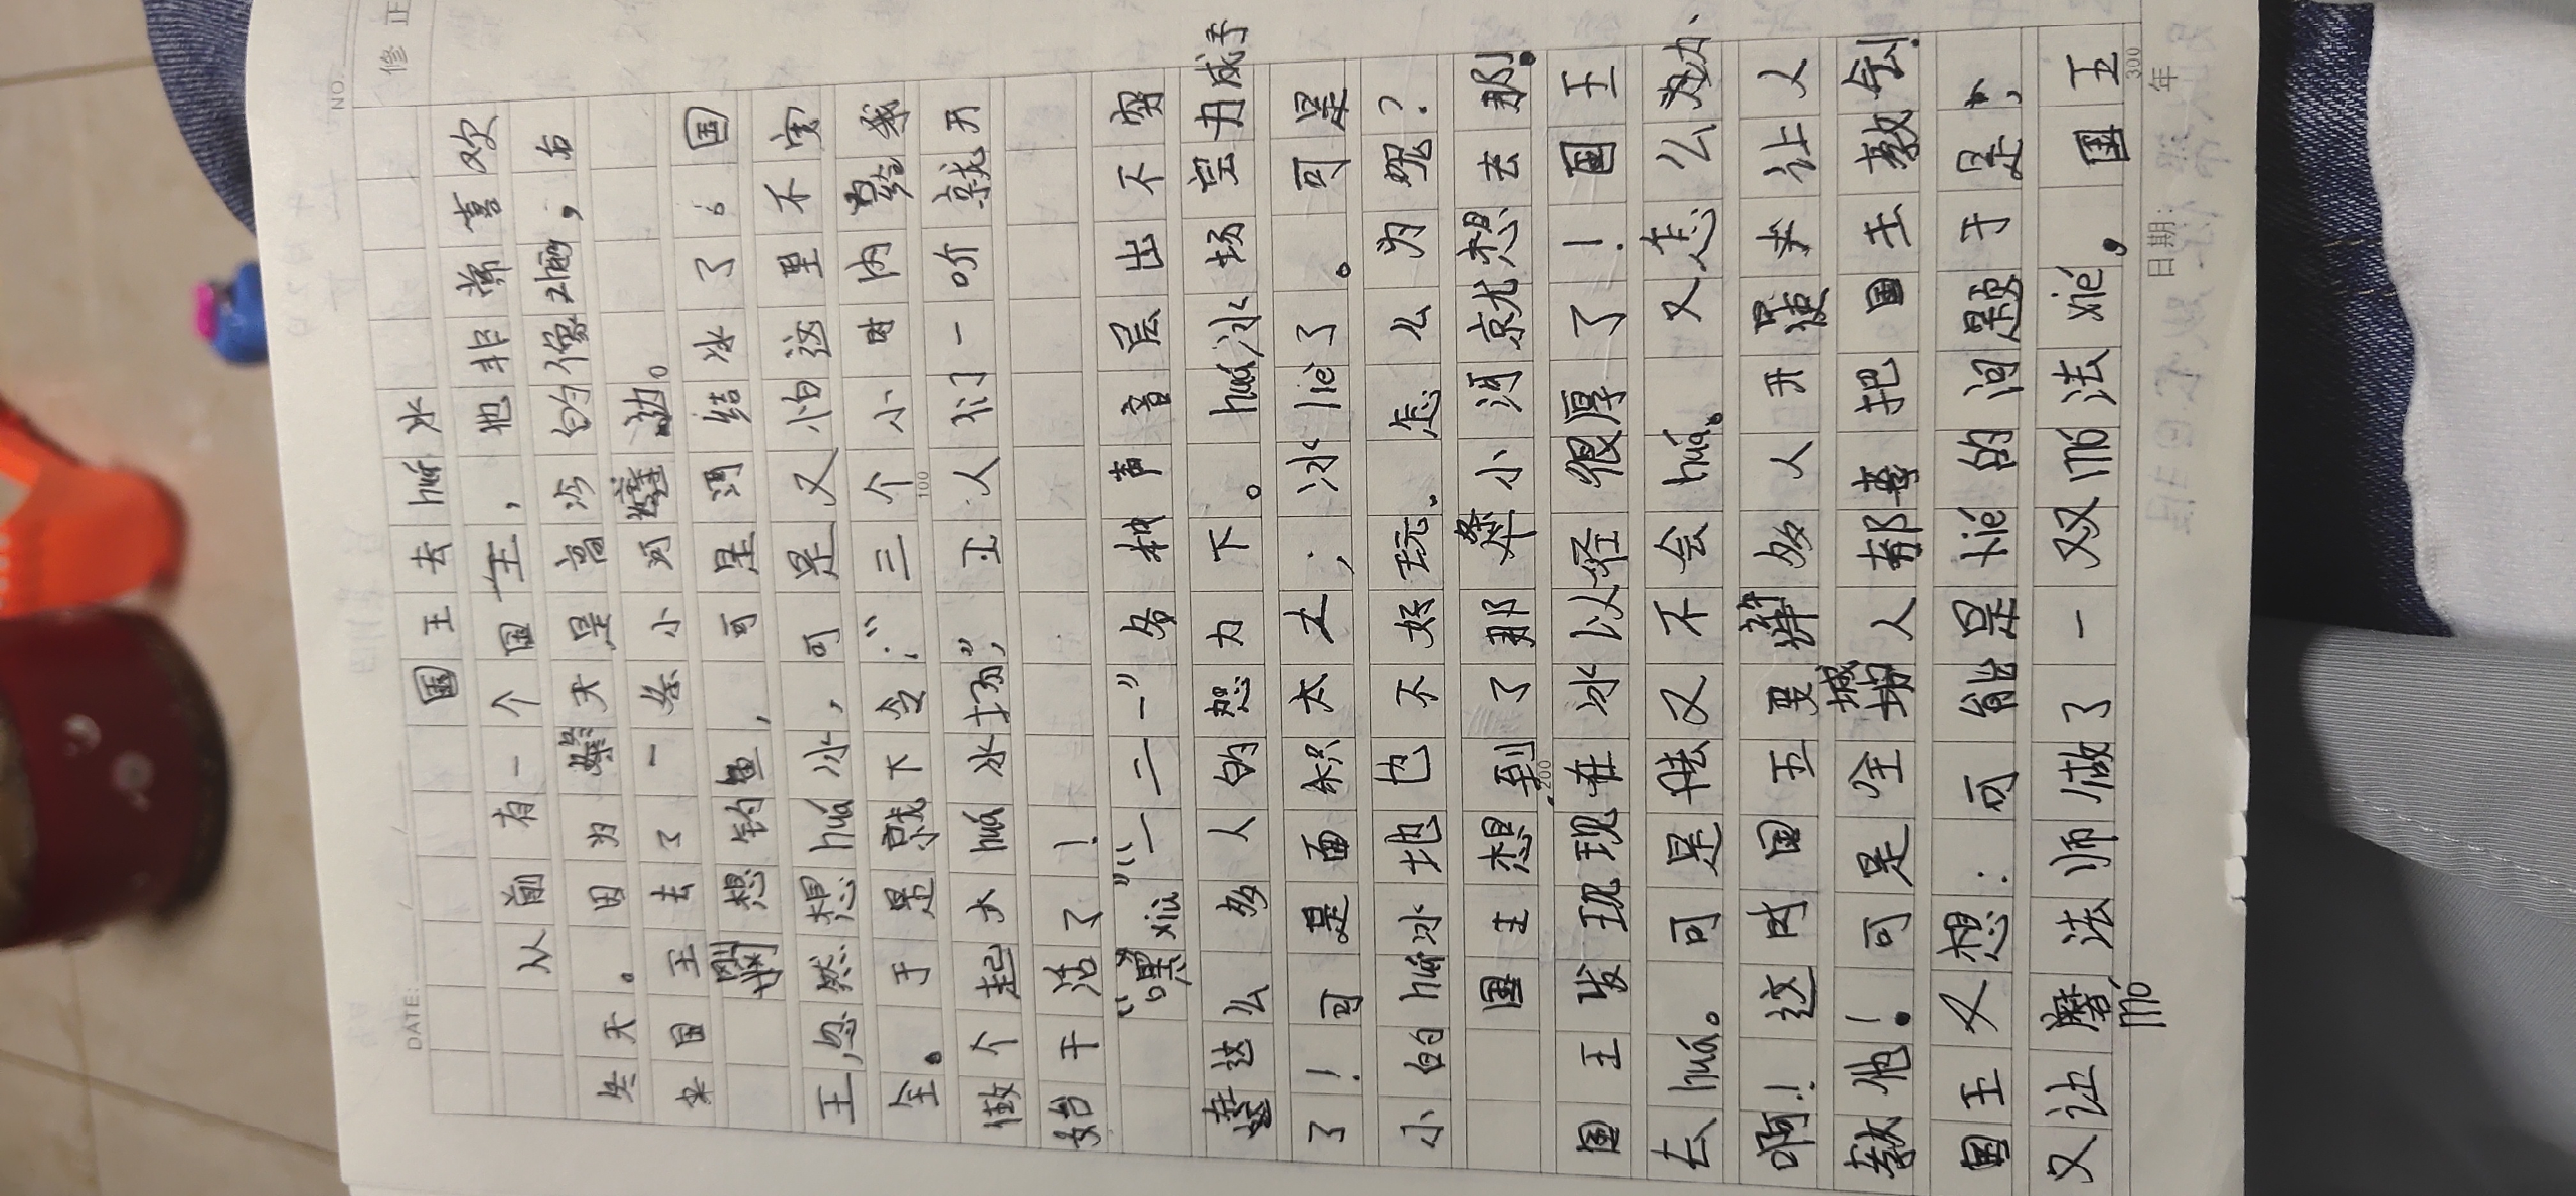 NO.
修 正
DATE:
国王去huá冰
从前有一个国王，他非常喜欢
冬天。因为冬天是高冷的像zhe，右
来国王去了一条小河边。
刚想钓鱼，可是河结冰了。国
王，忽然想huá冰，可是又怕这里不安
全。于是就下令：“三个小时内给我
做个起大huá冰场”，工人们一听就开
始干活了！
“嘿xiù”“一二一”各种声音层出不穷
在这么多人的努力下。huá冰场完力成予
了！可是面积太大；冰lie了。可是
小的huá冰地也不好玩。怎么为呢？
国王想到了那条小河就想去那！
国王发现现在冰以经很厚了！国王
去huá。可是他又不会huá。又怎么办、
啊！这时国王要许多人开是使来让人
教他！可是全城人都拿把国王教会！
国王又想：可能是xié的问题于是，
又让磨法师做了一双mó法xié，国王
mó
100
200
300
日期: 年